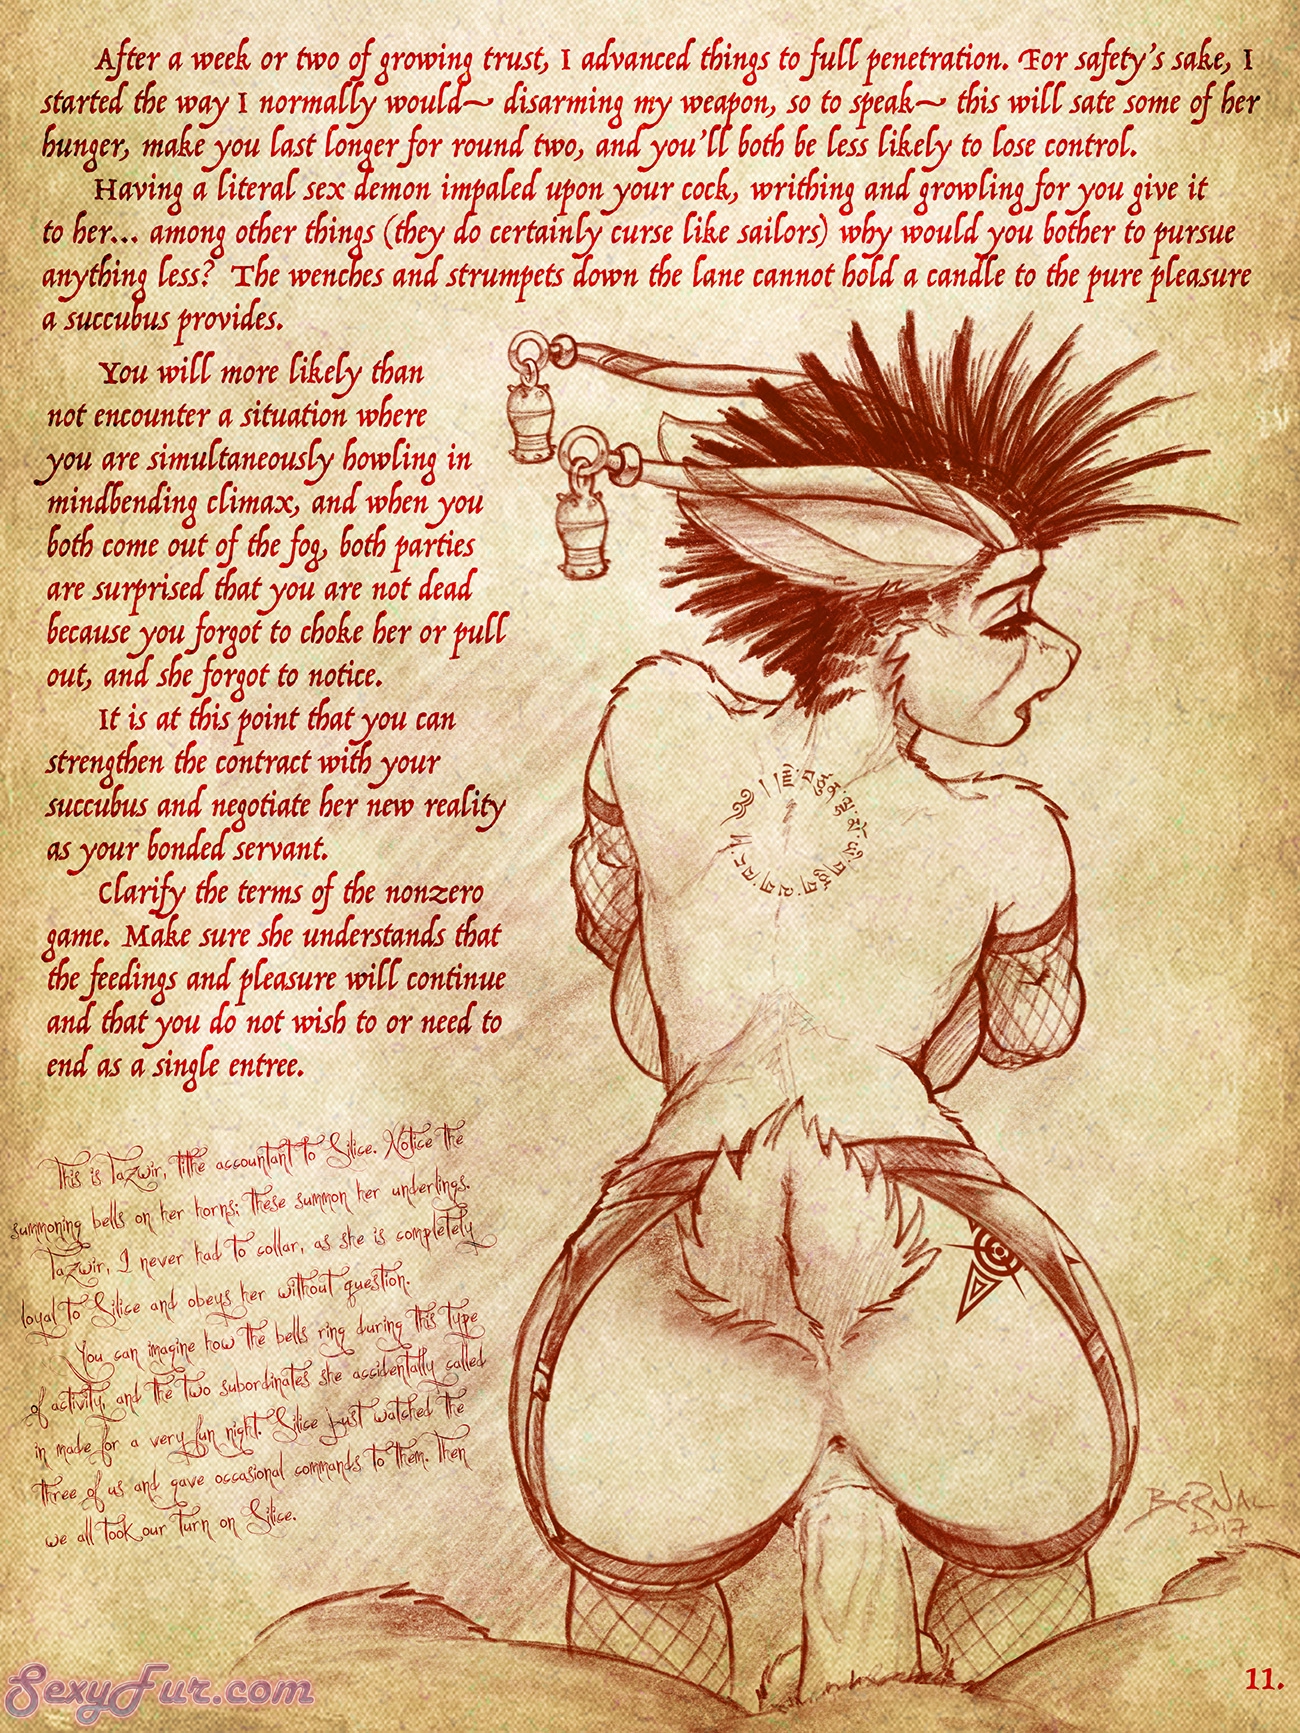 After a week or two of growing trust, I advanced things to full penetration. For safety's sake, I
started the way I normally would~ disarming my weapon, so to speak~ this will sate some of her
hunger, make you last longer for round two, and you'll both be less likely to lose control.
Having a literal sex demon impaled upon your cock, writhing and growling for you give it
to her... among other things (they do certainly curse like sailors) why would you bother to pursue
anything less? The wenches and strumpets down the lane cannot hold a candle to the pure pleasure
a succubus provides.
You will more likely than
not encounter a situation where
you are simultaneously howling in
mindbending climax, and when you
both come out of the fog, both parties
are surprised that you are not dead
because you forgot to choke her or pull
out, and she forgot to notice.
It is at this point that you can
strengthen the contract with your
succubus and negotiate her new reality
as your bonded servant.
Clarify the terms of the nonzero
game. Make sure she understands that
the feedings and pleasure will continue
and that you do not wish to or need to
end as a single entree.
This is Tazwir, tithe accountant to Silice. Notice the
summoning bells on her horns; these summon her underlings.
Tazwir, I never had to collar, as she is completely
loyal to Silice and obeys her without question.
You can imagine how the bells ring during this type
of activity, and the two subordinates she accidentally called
in made for a very fun night. Silice just watched the
three of us and gave occasional commands to them. Then
we all took our turn on Silice.
BERNAL
2017
SexyFur.com
11.